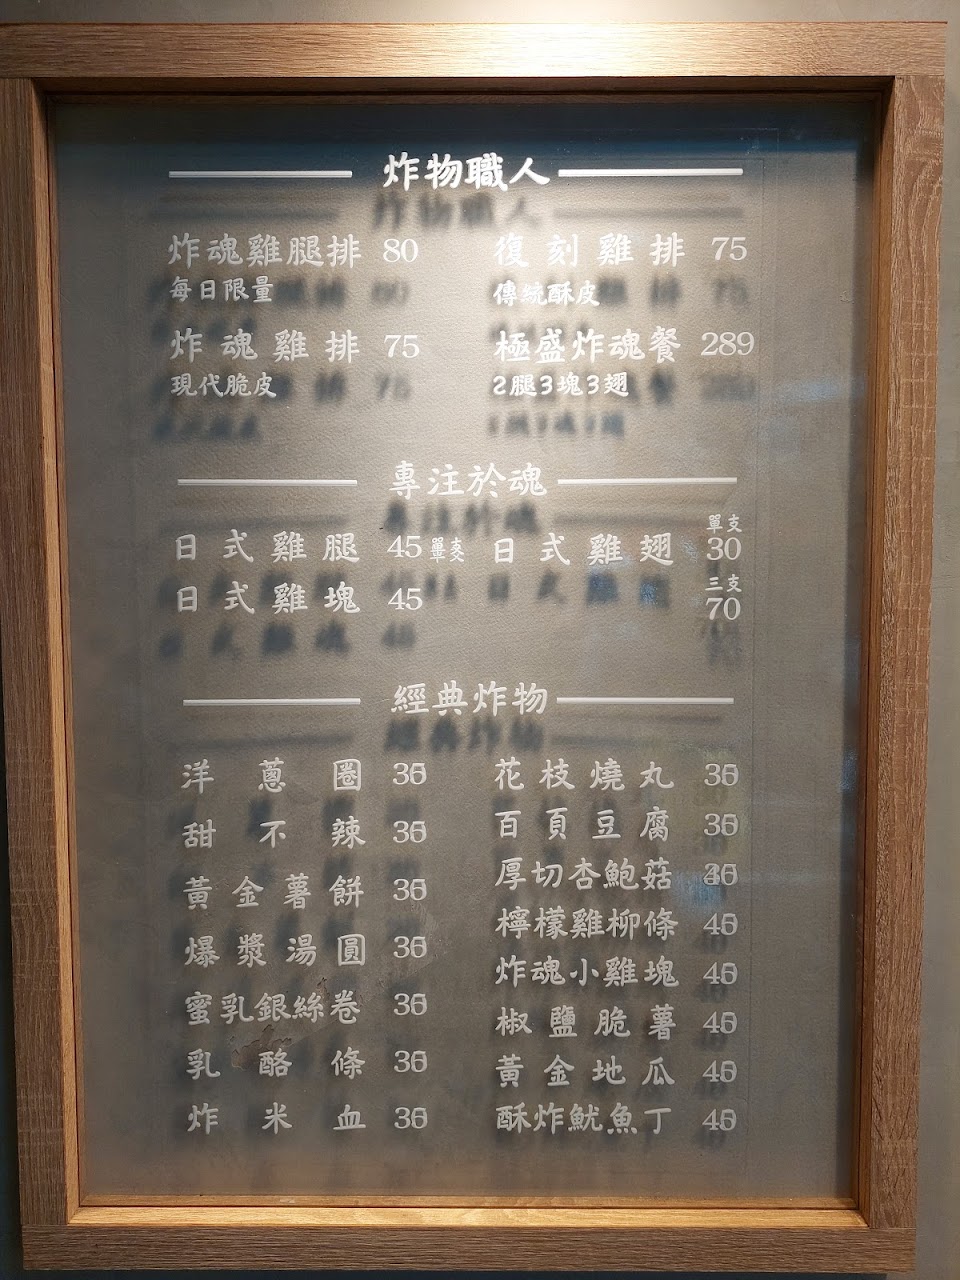 炸物職人
炸魂雞腿排 80
每日限量
復刻雞排 75
傳統酥皮
炸魂雞排 75
現代脆皮
極盛炸魂餐 289
2腿3塊3翅
專注於魂
日式雞腿 45
日式雞翅
單支
30
三支
70
日式雞塊 45
經典炸物
洋蔥圈
甜不辣
黃金薯餅
爆漿湯圓
蜜乳銀絲卷
乳酪條
炸米血
花枝燒丸
百頁豆腐
厚切杏鮑菇
檸檬雞柳條
炸魂小雞塊
椒鹽脆薯
黃金地瓜
酥炸魷魚丁